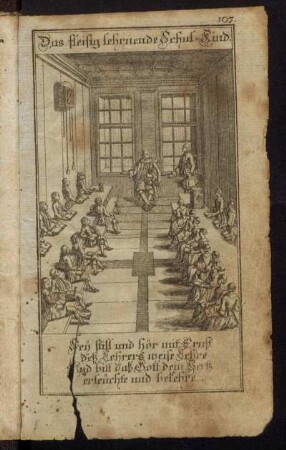 107.
Das fleisig lehrnende Schul-Kind.
Sey still und hör mit Ernst
deß Lehrers weise Lehre
und bitt daß Gott dein Hertz
erleuchte und bekehre.